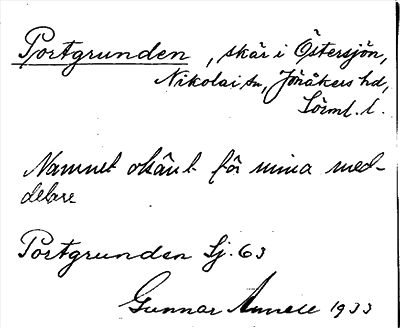 Portgrunden, skär i Östersjön,
Nikolai sn, Jönåkers hd,
Sörml. l.
Namnet okänt för mina med-
delare
Portgrunden Sj. 63
Gunnar Annell 1933